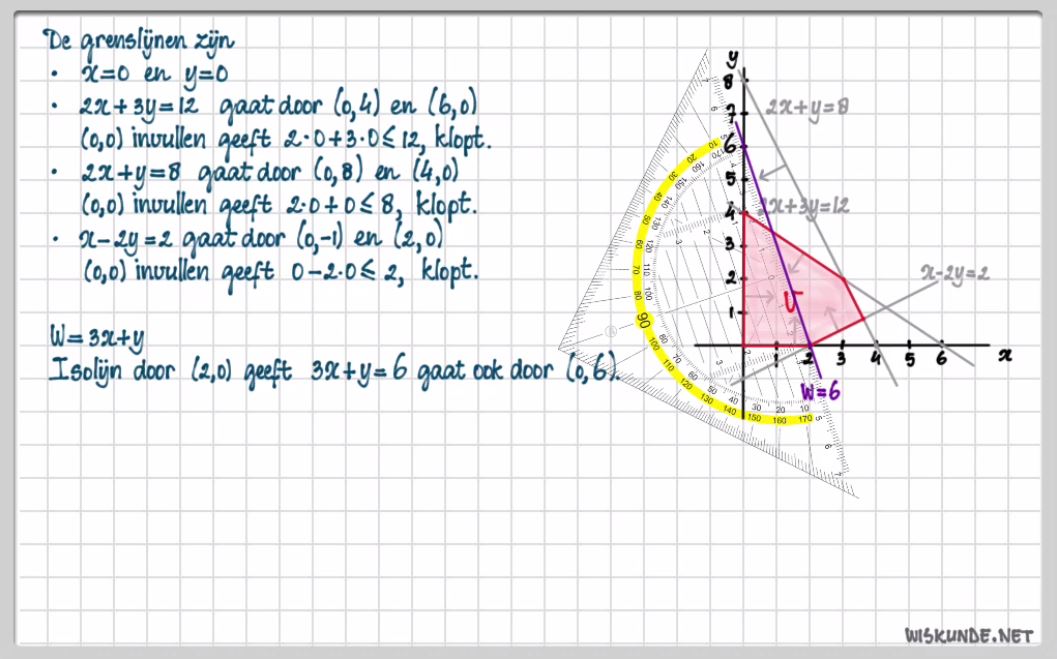 De grenslijnen zijn
• x=0 en y=0
• 2x+3y=12 gaat door (0,4) en (6,0)
(0,0) invullen geeft 2·0+3·0≤12, klopt.
• 2x+y=8 gaat door (0,8) en (4,0)
(0,0) invullen geeft 2·0+0≤8, klopt.
• x-2y=2 gaat door (0,-1) en (2,0)
(0,0) invullen geeft 0-2·0≤2, klopt.
W=3x+y
Isolijn door (2,0) geeft 3x+y=6 gaat ook door (0,6).
y
8
7
6
5
4
3
2
1
1 2 3 4 5 6 x
2x+y=8
2x+3y=12
x-2y=2
V
W=6
90
WISKUNDE.NET